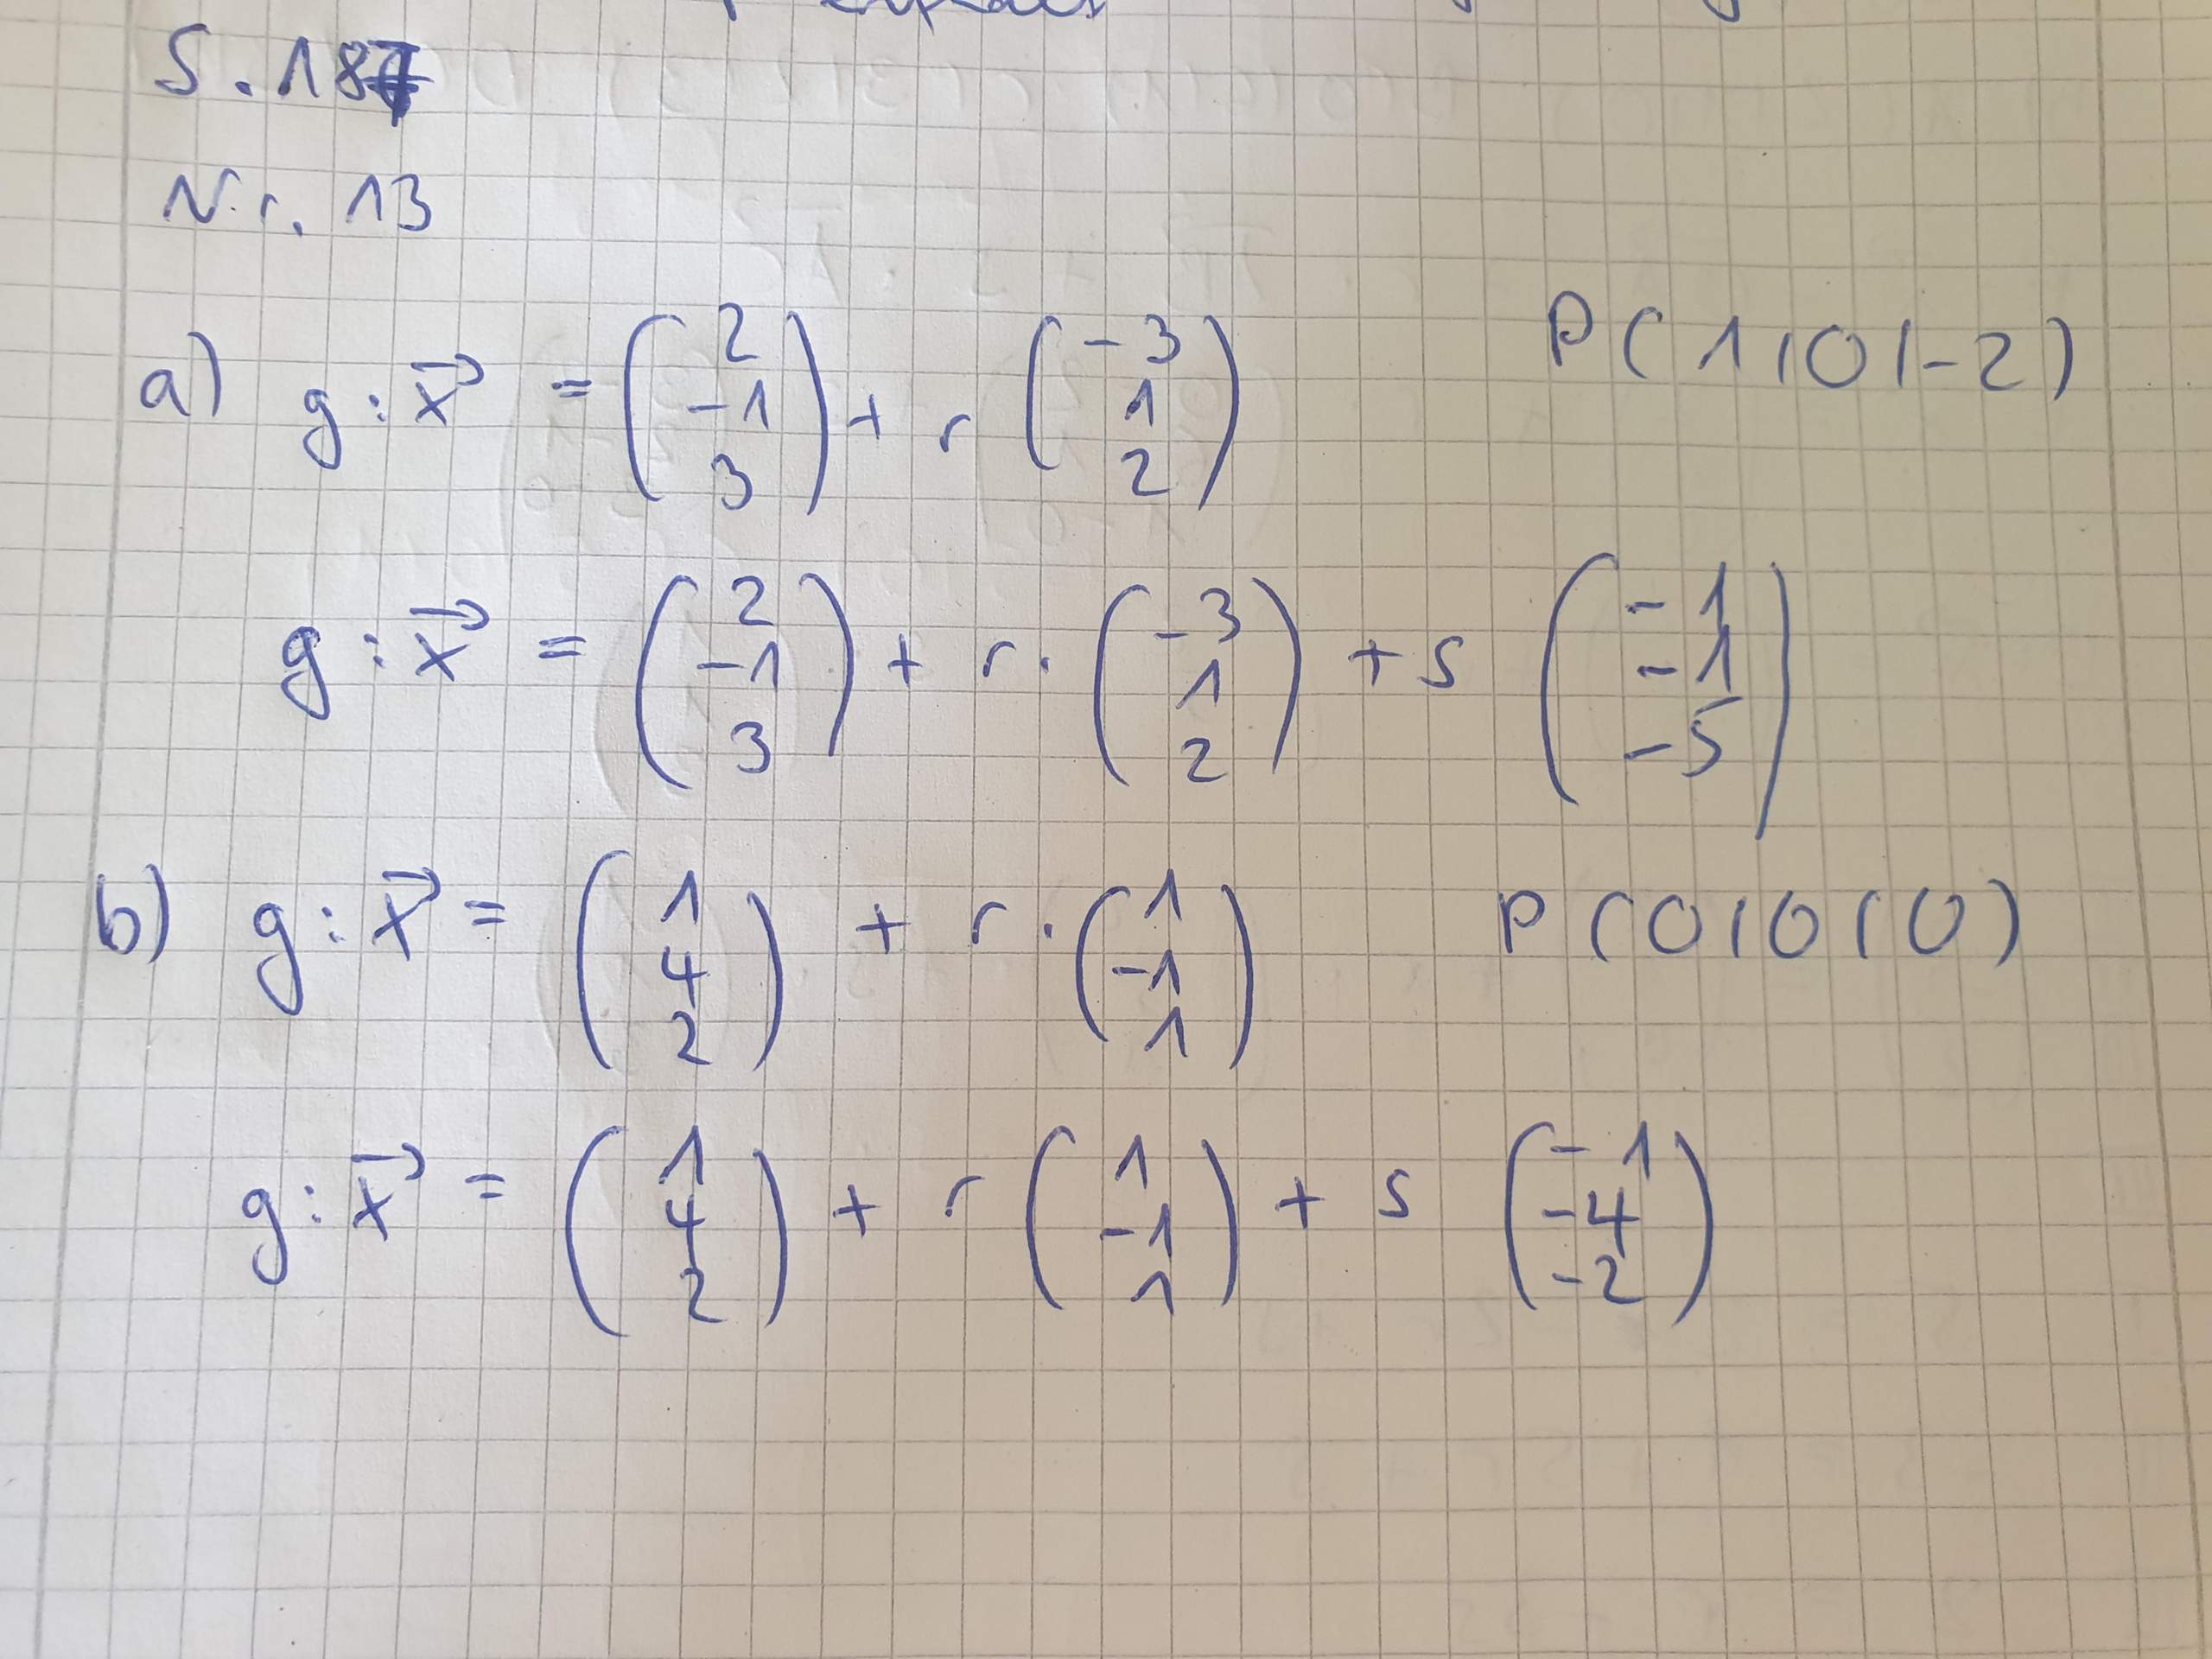 S. 187
Nr. 13
a) g: x⃗ = (2 -1 3) + r (-3 1 2) P(1|0|-2)
g: x⃗ = (2 -1 3) + r · (-3 1 2) + s (-1 -1 -5)
b) g: x⃗ = (1 4 2) + r · (1 -1 1) P(0|0|0)
g: x⃗ = (1 4 2) + r (1 -1 1) + s (-1 -4 -2)